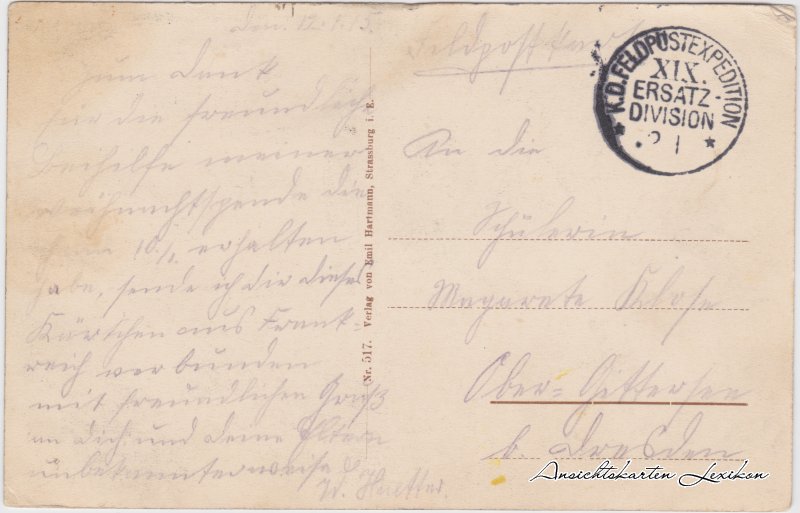 den 12.1.15
Zum Dank
für die freundliche
Beihülfe meiner
Weihnachtsspende die
ich am 10/1. erhalten
habe, sende ich dir dieses
Kärtchen aus Frank-
reich verbunden
mit freundlichen Gruß
an dich und deine Eltern
unbekannterweise
W.
Feldpostkarte
K.D. FELDPOSTEXPEDITION
XIX.
ERSATZ-
DIVISION
An die
Schülerin
Magarete Klose
Ober-Gittersee
b. Dresden
(Nr. 517. Verlag von Emil Hartmann, Strassburg i. E.
Ansichtskarten Lexikon